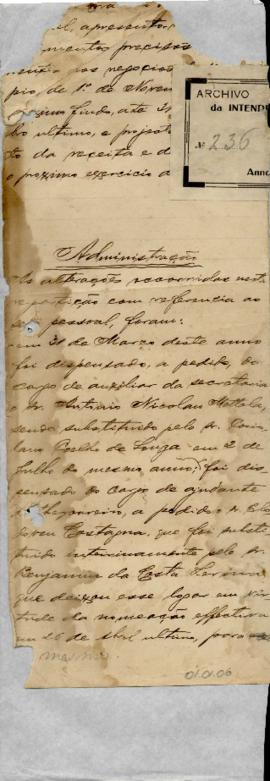 apresento
mentos precisos
os negocios
pio, de 1º de Novem
ximo findo, até 3
bro ultimo, e project
to da receita e d
o proximo exercicio d
ARCHIVO
da INTENDE
Nº 236
Anno
Administração
As alterações occorridas nesta
repartição com referencia ao
seu pessoal, foram:
em 31 de Março deste anno
foi dispensado, a pedido, do
cargo de auxiliar da secretaria
o sr. Antonio Nicolau
sendo substituido pelo sr.
Coelho de Souza em 2 de
Julho do mesmo anno; foi dis
pensado do cargo de ajudante
a pedido, o sr.
Costagna, que foi substi
tuido interinamente pelo sr.
Benjamin da Costa
que deixou esse lugar em vir
tude da nomeação effectiva
em 26 de Abril ultimo, para o
mesmo
01.01.06